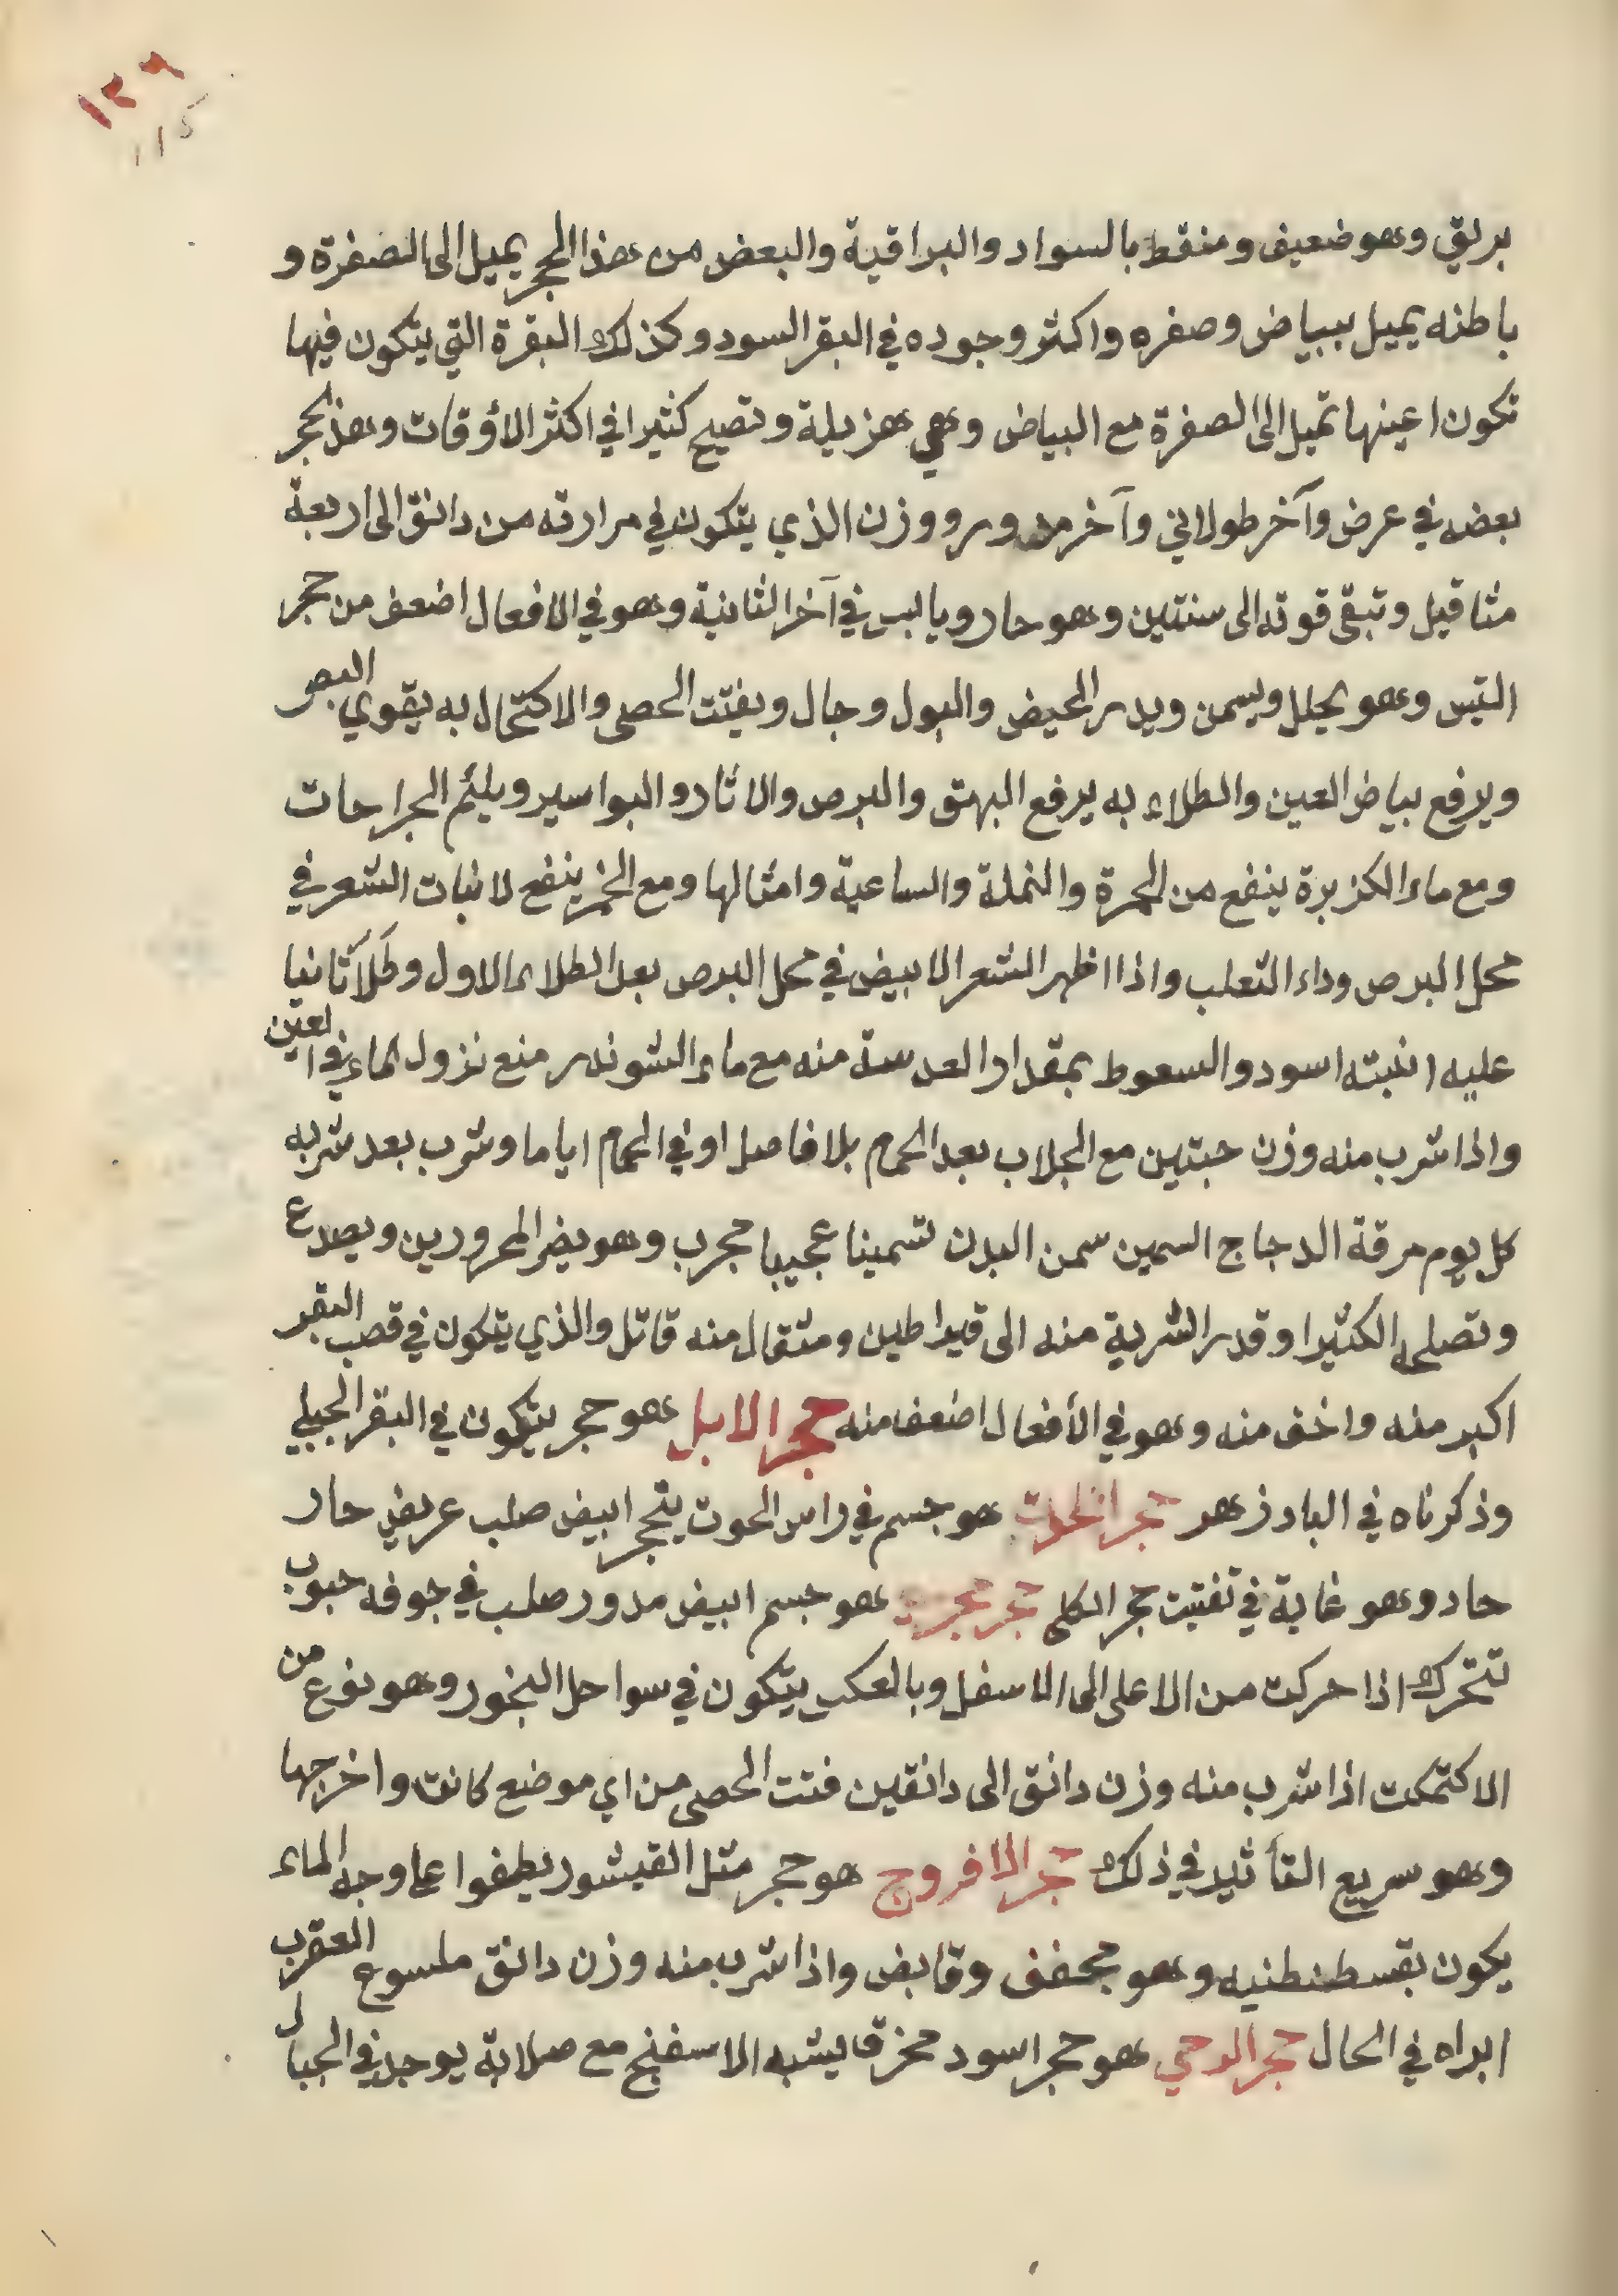 ١٣٩
١١٥
بريق وهو ضعيف ومنقط بالسواد والبراقية والبعض من هذا الحجر يميل الى الصفرة و
باطنه يميل ببياض وصفره واكثر وجوده في البقر السود وكذلك البقرة التي يتكون فيها
تكون اعينها تميل الى الصفرة مع البياض وهي هزيلة وتصيح كثيرا في اكثر الاوقات وهذا لحجر
بعضه في عرض وآخر طولاني وآخر مدور ووزن الذي يتكون في مرارته من دانق الى اربعة
مثاقيل وتبقى قوته الى سنتين وهو حار ويابس في آخر الثانية وهو في الافعال اضعف من حجر
التيس وهو يحلل ويسمن ويدر الحيض والبول وجال ويفتت الحصى والاكتحال به يقوي البصر
ويرفع بياض العين والطلاء به يرفع البهق والبرص والاثار والبواسير ويلئم الجراحات
ومع ماء الكزبرة ينفع من الحمرة والنملة والساعية وامثالها ومع الخمر ينفع لانبات الشعر في
محل البرص وداء الثعلب واذا اظهر الشعر الابيض في محل البرص بعد الطلاء الاول وطلآ ثانيا
عليه انبته اسود والسعوط بمقدار العدسة منه مع ماء الشوندر منع نزول الماء في العين
واذا شرب منه وزن حبتين مع الجلاب بعد الحمام بلا فاصل او في الحمام اياما وشرب بعد شربه
كل يوم مرقة الدجاج السمين سمن البدن تسمينا عجيبا مجرب وهو يضر المحرورين ويصدع
وتصلحه الكثيرا وقدر الشربة منه الى قيراطين ومثقال منه قاتل والذي يتكون في قصب البقر
اكبر منه واخف منه وهو في الأفعال اضعف منه حجر الابل هو حجر يتكون في البقر الجبلي
وذكرناه في البادزهر حجر الحوت هو جسم في راس الحوت يتحجر ابيض صلب عريض حار
حاد وهو غاية في تفتيت حجر الكلى حجر هو جسم ابيض مدور صلب في جوفه حبوب
تتحرك اذا حركت من الاعلى الى الاسفل وبالعكس يتكون في سواحل البخور وهو نوع من
الاكتمكت اذا شرب منه وزن دانق الى دانقين فتت الحصى من اي موضع كانت واخرجها
وهو سريع التأثير في ذلك حجر الافروج هو حجر مثل القيشور يطفوا على وجه الماء
يكون بقسطنطنيه وهو مجفف وقابض واذا شرب منه وزن دانق ملسوع العقرب
ابراه في الحال حجر الرحي هو حجر اسود مخرق يشبه الاسفنج مع صلابة يوجد في الجبال